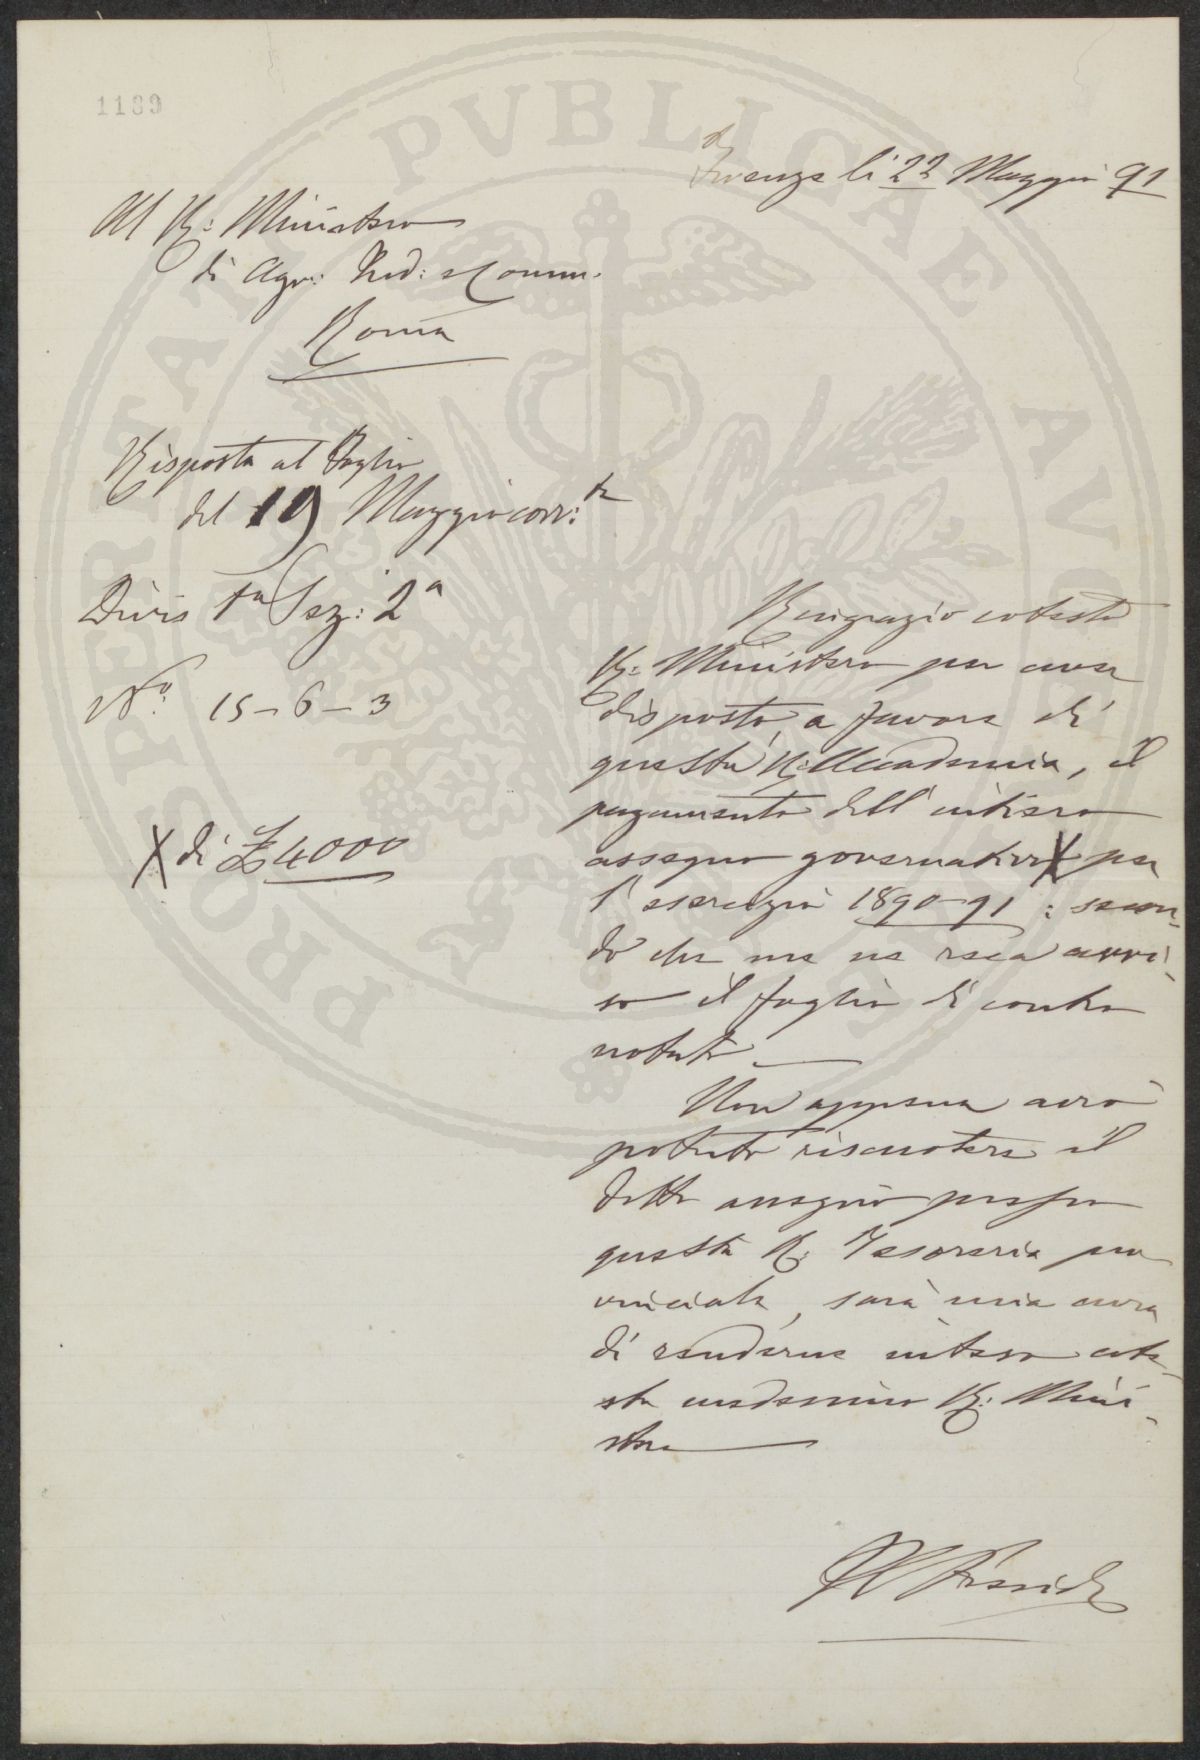 1189
PROSPERITATI PVBLICAE AVG
Firenze li 22 Maggio 91
Al R: Ministero
di Agr: Ind: e Comm.
Roma
Risposta al Foglio
del 19 Maggio corr:te
Divis 1a Sez: 2a
No: 15-6-3
X di £ 4000
Ringrazio cotesto
R: Ministero per aver
disposto, a favore di
questa R: Accademia, il
pagamento dell'intiero
assegno governativo X per
l'esercizio 1890-91: secon-
do che me ne reca avvi-
so il foglio di contro
notato
Non appena avrò
potuto riscuotere il
detto assegno presso
questa R: Tesoreria pro
vinciale, sarà mia cura
di renderne inteso cote-
sto medesimo R: Mini-
stero
Il Presid